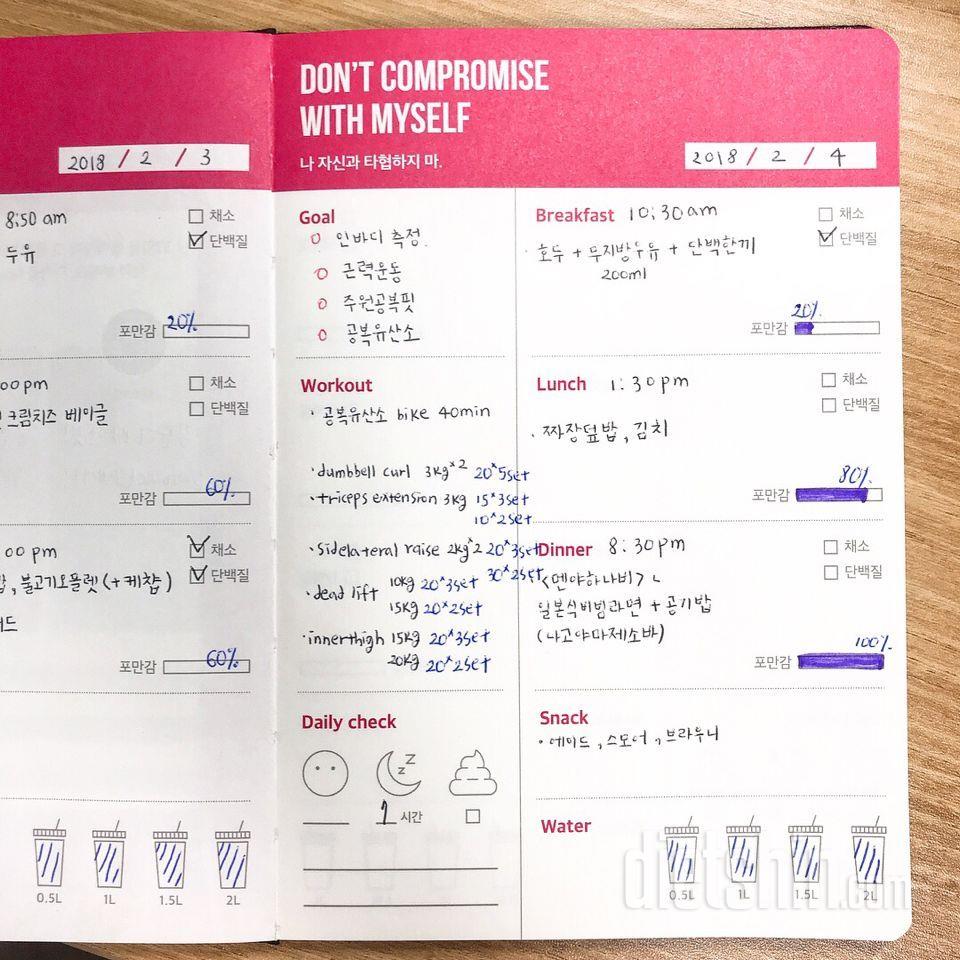 2018 / 2 / 3
8:50 am
채소
두유
단백질
포만감 20%
00pm
채소
크림치즈 베이글
단백질
포만감 60%
00 pm
채소
밥, 불고기오믈렛 (+케찹)
단백질
포만감 60%
0.5L 1L 1.5L 2L
DON'T COMPROMISE
WITH MYSELF
나 자신과 타협하지 마.
2018 / 2 / 4
Goal
○ 인바디 측정.
○ 근력운동
○ 주원공복핏
○ 공복유산소
Workout
· 공복유산소 bike 40min
· dumbbell curl 3kg×2 20×5set
· triceps extension 3kg 15×3set
10×2set
· side lateral raise 2kg×2 20×3set
30×2set
· dead lift 10kg 20×3set
15kg 20×2set
· innerthigh 15kg 20×3set
20kg 20×2set
Daily check
z z z
7 시간
Breakfast 10:30am
채소
단백질
· 호두 + 무지방우유 + 단백한끼
200ml
포만감 20%
Lunch 1:30pm
채소
단백질
· 짜장덮밥, 김치
포만감 80%
Dinner 8:30pm
채소
단백질
<멘야하나비>
일본식비빔라면 + 공기밥
(나고야마제소바)
포만감 100%.
Snack
· 에이드, 스모어, 브라우니
Water
0.5L 1L 1.5L 2L
dietshin.com